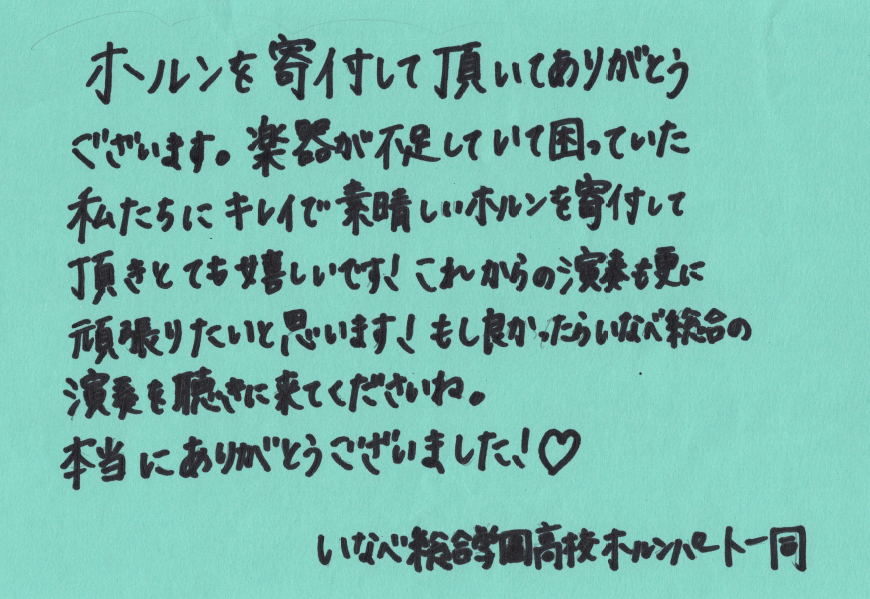 ホルンを寄付して頂いてありがとう
ございます。楽器が不足していて困っていた
私たちにキレイで素晴しいホルンを寄付して
頂きとても嬉しいです！これからの演奏も更に
頑張りたいと思います！もし良かったらいなべ総合の
演奏を聴きに来てくださいね。
本当にありがとうございました！♡
いなべ総合学園高校ホルンパート一同